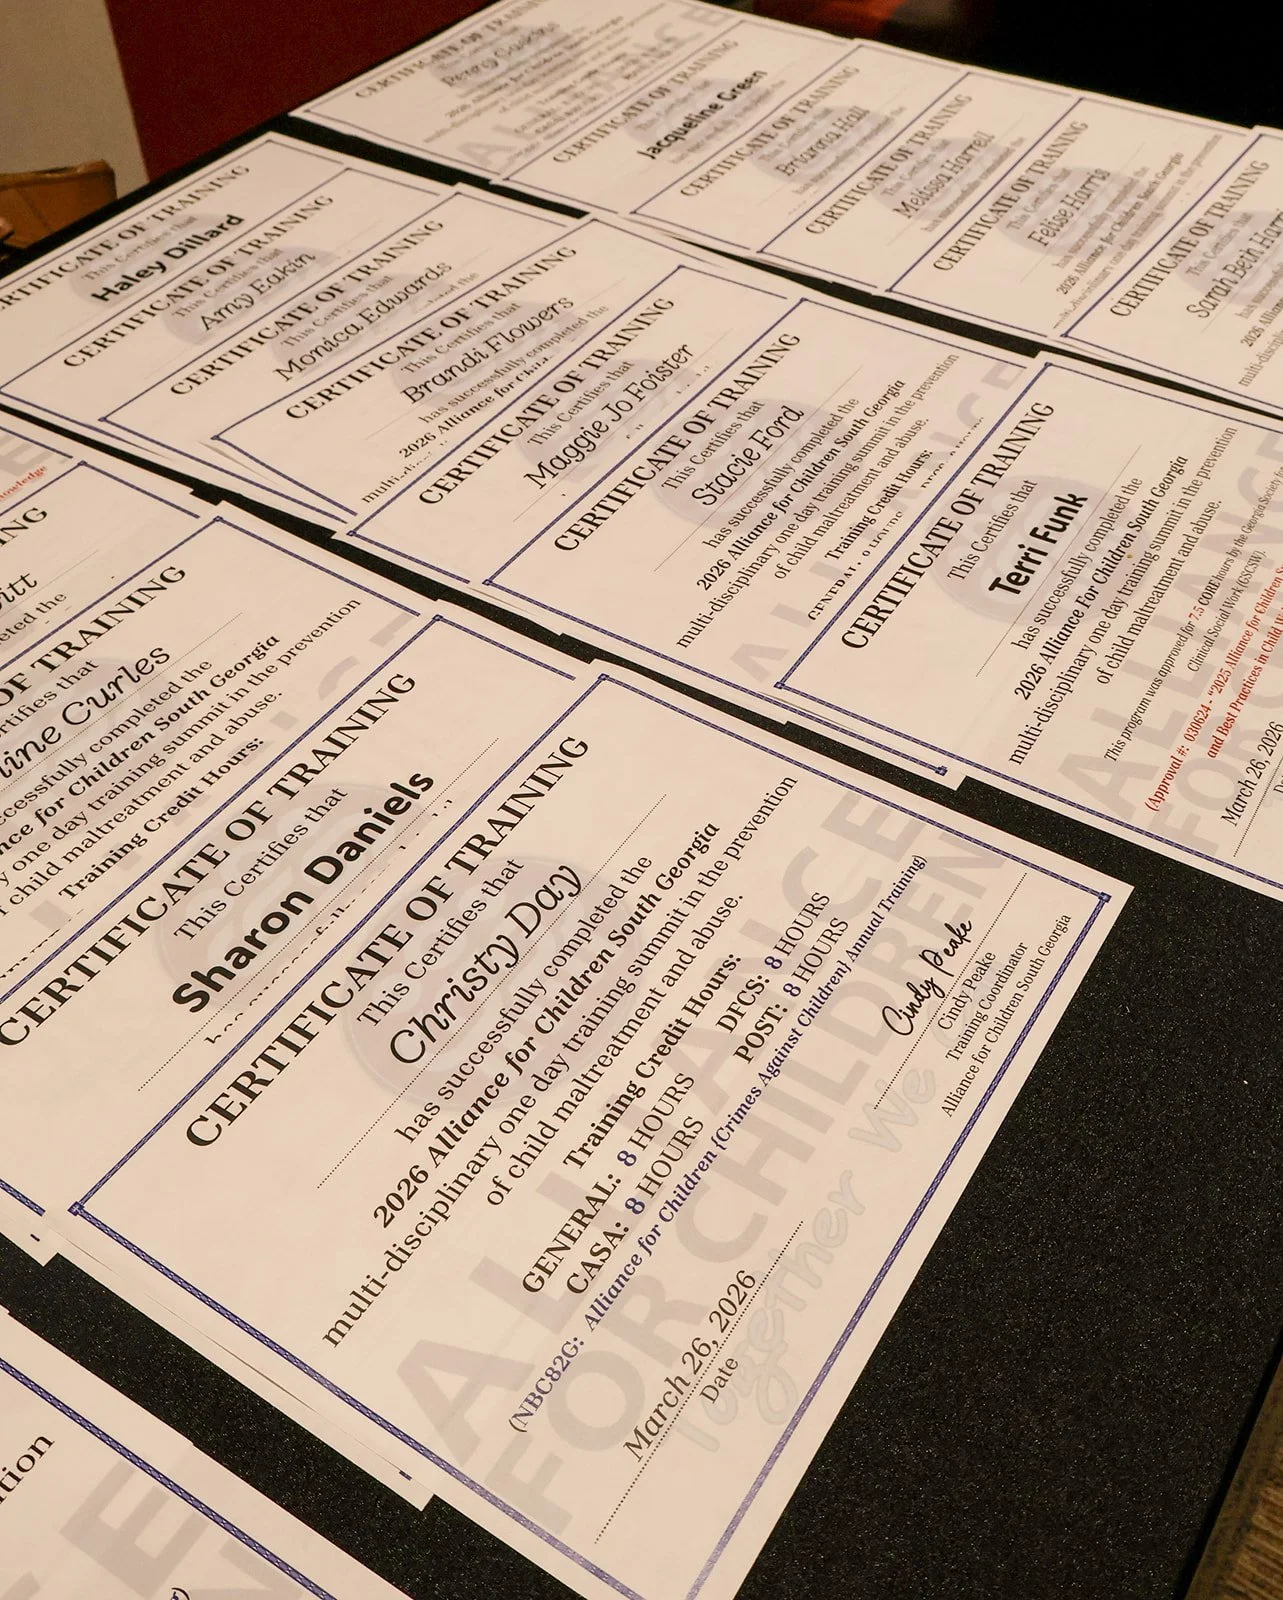 CERTIFICATE OF TRAINING
CERTIFICATE OF TRAINING
This Certifies that
Jacqueline Green
CERTIFICATE OF TRAINING
This Certifies that
Brianna Hall
CERTIFICATE OF TRAINING
This Certifies that
Melissa Harrell
CERTIFICATE OF TRAINING
This Certifies that
Felise Harris
2026 Alliance for Children South Georgia
CERTIFICATE OF TRAINING
This Certifies that
Sarah Beth
CERTIFICATE OF TRAINING
This Certifies that
Haley Dillard
CERTIFICATE OF TRAINING
This Certifies that
Amy Eakin
CERTIFICATE OF TRAINING
This Certifies that
Monica Edwards
CERTIFICATE OF TRAINING
This Certifies that
Brandi Flowers
has successfully completed the
2026 Alliance for
CERTIFICATE OF TRAINING
This Certifies that
Maggie Jo Foister
CERTIFICATE OF TRAINING
This Certifies that
Stacie Ford
has successfully completed the
2026 Alliance for Children South Georgia
multi-disciplinary one day training summit in the prevention
of child maltreatment and abuse.
Training Credit Hours:
CERTIFICATE OF TRAINING
This Certifies that
Terri Funk
has successfully completed the
2026 Alliance For Children South Georgia
multi-disciplinary one day training summit in the prevention
of child maltreatment and abuse.
This program was approved for 7.5 CORE hours by the Georgia Society
Clinical Social Work (GSCSW).
(Approval #: 030624 - "2025 Alliance for Children
and Best Practices in Child
March 26, 2026
ALLIANCE
FOR
OF TRAINING
that
ine Curles
completed the
for Children South Georgia
one day training summit in the prevention
child maltreatment and abuse.
Training Credit Hours:
CERTIFICATE OF TRAINING
This Certifies that
Sharon Daniels
CERTIFICATE OF TRAINING
This Certifies that
Christy Day
has successfully completed the
2026 Alliance for Children South Georgia
multi-disciplinary one day training summit in the prevention
of child maltreatment and abuse.
Training Credit Hours:
GENERAL: 8 HOURS DFCS: 8 HOURS
CASA: 8 HOURS POST: 8 HOURS
(NBC82G: Alliance for Children {Crimes Against Children} Annual Training)
March 26, 2026
Date
Cindy Peake
Cindy Peake
Training Coordinator
Alliance for Children South Georgia
ALLIANCE
FOR CHILDREN
Together We